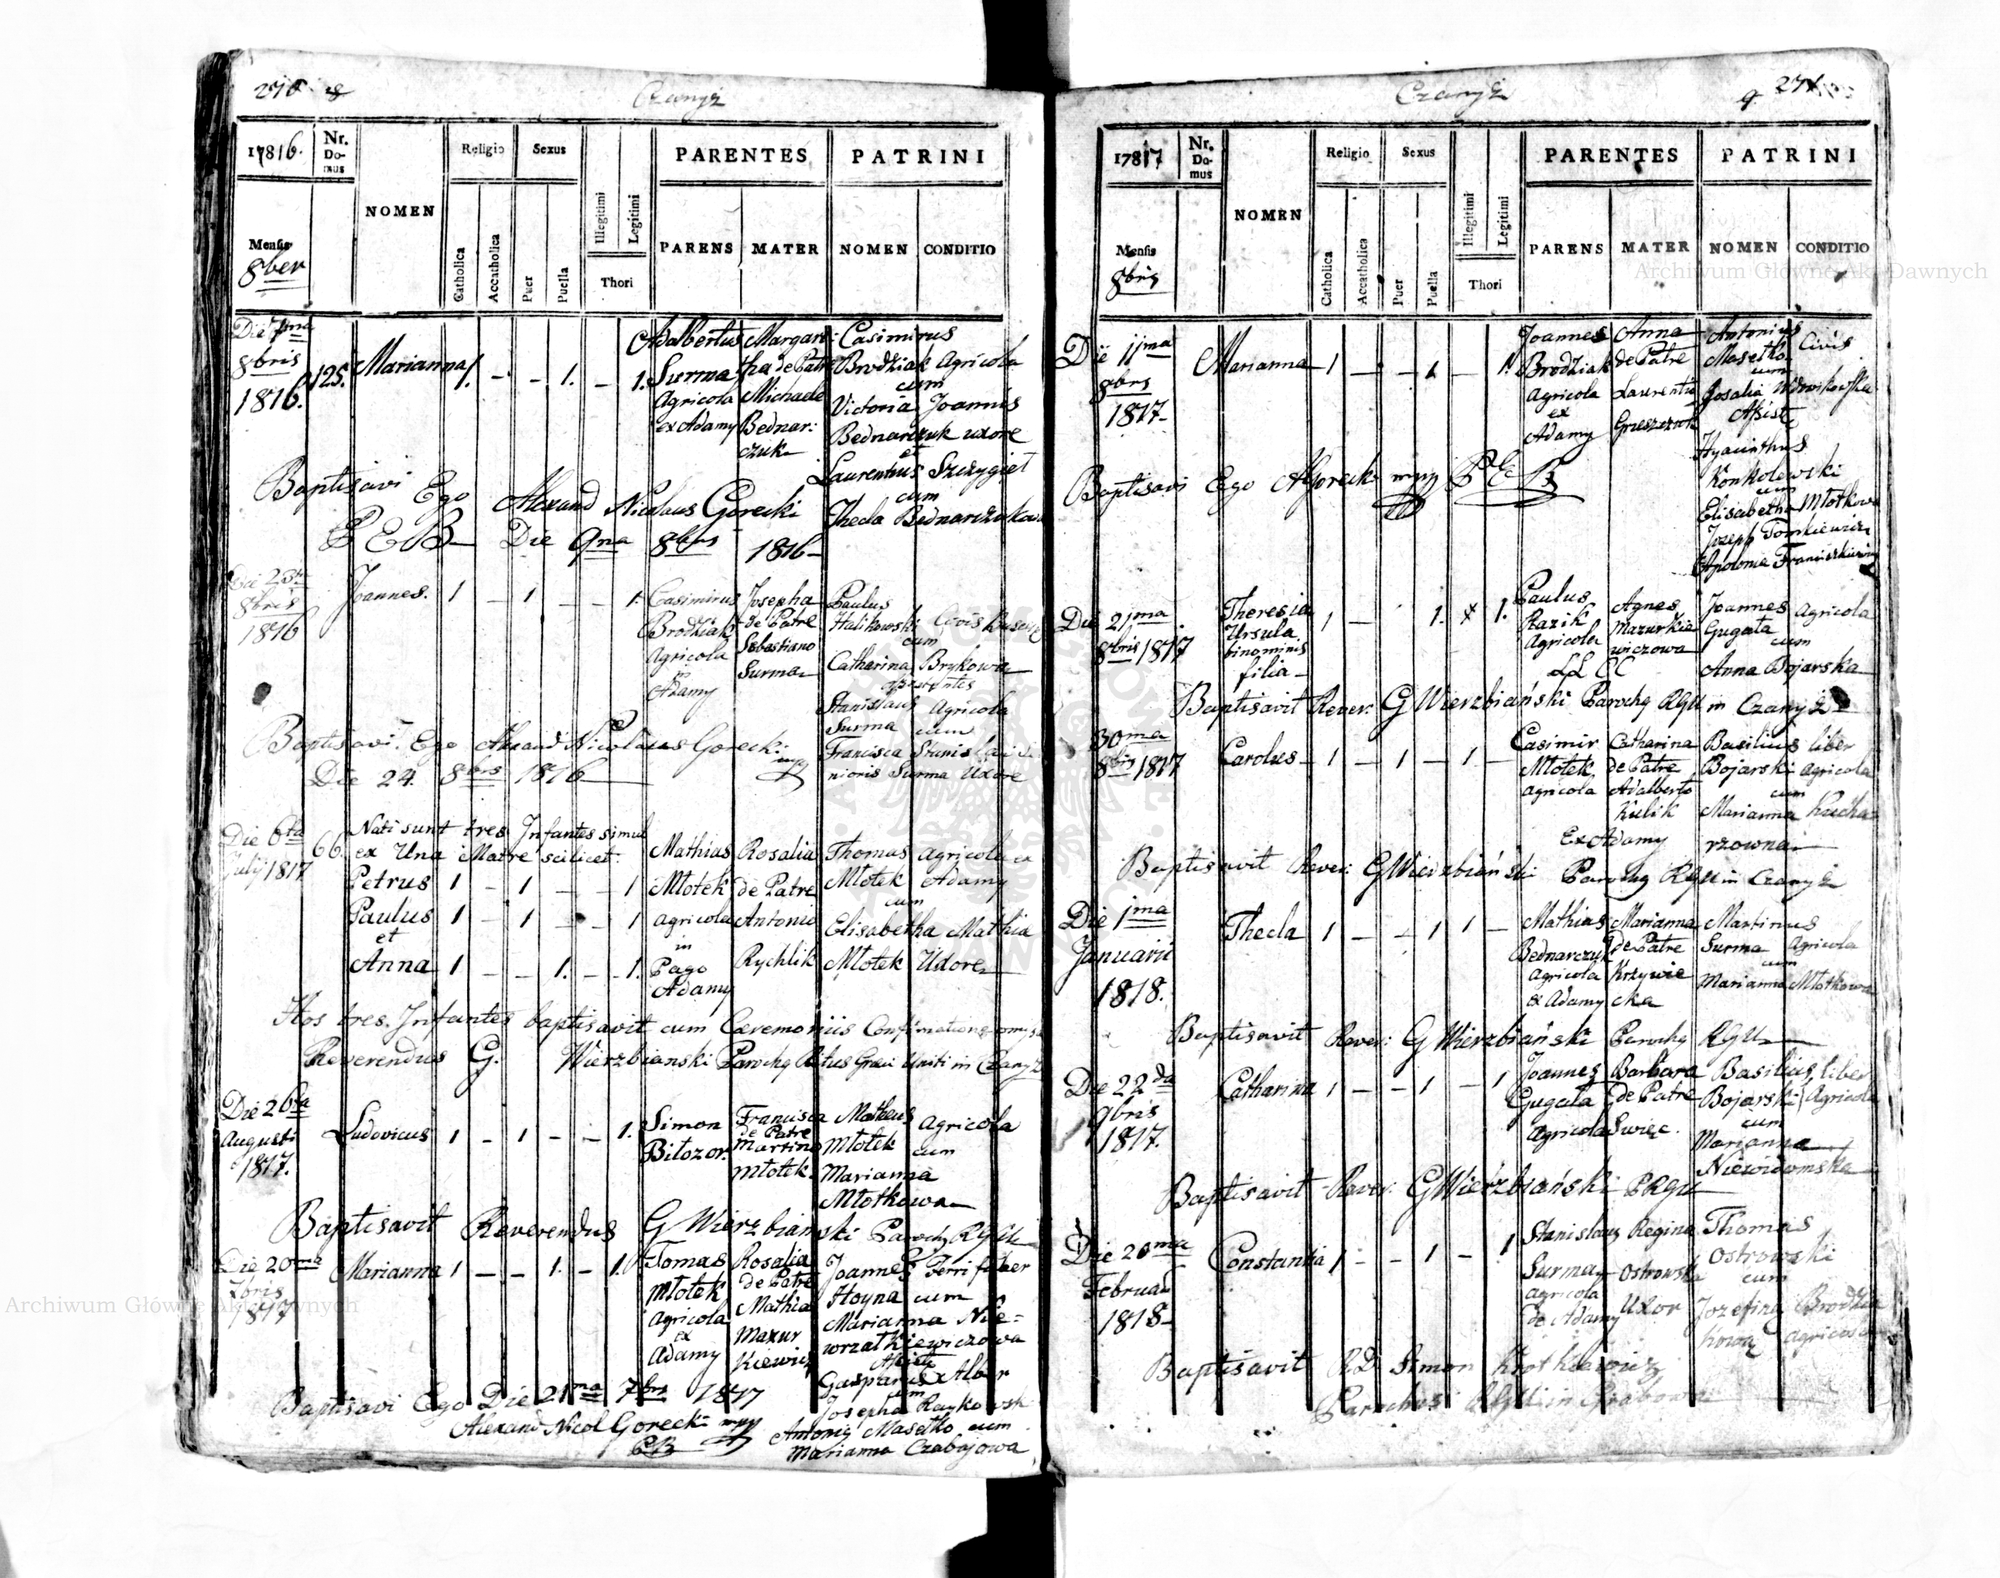 270
Czanyż
17816.
Nr.
Do-
mus
NOMEN
Religio
Sexus
PARENTES
PATRINI
Mensis
8ber
Catholica
Accatholica
Puer
Puella
Illegitimi
Legitimi
Thori
PARENS
MATER
NOMEN
CONDITIO
Die 7ma
8bris
1816.
125.
Marianna
1.
-
-
1.
-
1.
Adalbertus
Surma
Agricola
ex Adamy
Margari:
tha de Patre
Michaele
Bednar:
czuk
Casimirus
Brodziak Agricola
cum
Victoria Joannis
Bednarczuk uxore
et
Laurentius Szczygieł
cum
Thecla Bednarczukowa
Baptisavi Ego Alexand Nicolaus Gorecki
P E B Die 9na 8bris 1816
Die 23tia
8bris
1816
Joannes.
1
-
1
-
-
1.
Casimirus
Brodziak
Agricola
Adamy
Josepha
de Patre
Sebastiano
Surma
Paulus
Halikowski Civis
cum
Catharina Brykowa
Stanislaus Agricola
Surma cum
Francisca Stanislai Se
nioris Surma Uxore
Baptisavi Ego Alexand Nicolaus Gorecki
Die 24. 8bris 1816
Die 6ta
July 1817
66.
Nati sunt tres Infantes simul
ex Una Matre scilicet.
Petrus 1 - 1 - - 1
Paulus 1 - 1 - 1
et
Anna 1 - - 1. - 1.
Mathias
Młotek
agricola
in
Pago
Adamy
Rosalia
de Patre
Antonio
Rychlik
Thomas agricola ex
Młotek Adamy
cum
Elisabetha Mathia
Młotek Uxore
Hos tres Infantes baptisavit cum Cæremoniis
Reverendus G. Wierzbianski Parochq Ritus Græci Uniti in Czanyż
Die 26ta
Augusti
1817.
Ludovicus
1
-
1
-
-
1.
Simon
Biłozor.
Francisca
de Patre
Martino
Młotek
Matheus agricola
Młotek cum
Marianna
Młotkowa
Baptisavit Reverendus G Wierzbianski Paroch RGU
Die 20ma
7bris
1817
Marianna
1
-
-
1.
-
1.
Tomas
Młotek
Agricola
ex
Adamy
Rosalia
de Patre
Mathia
Mazur
Kiewicz
Joannes
Hoyna cum
Marianna Nie=
wrzatkiewiczowa
Gasparus Alber
cum
Josepha Raykowsk
Antonig Masełko cum
Marianna Czabajowa
Baptisavi Ego Die 21ma 7bris 1817
Alexand Nicol Gorecki mpp
271
Czanyż
17817
Nr.
Do-
mus
NOMEN
Religio
Sexus
PARENTES
PATRINI
Mensis
8bris
Catholica
Accatholica
Puer
Puella
Illegitimi
Legitimi
Thori
PARENS
MATER
NOMEN
CONDITIO
Die 11ma
8bris
1817
Marianna
1
-
-
1
-
1.
Joannes
Brodziak
Agricola
ex
Adamy
Anna
de Patre
Laurentio
Grzeszczuk
Antonius
Masełko Civis
cum
Rosalia Wdowikowska
Assiste
Hyacinthus
Konkolewski
cum
Elisabetha Młotkowa
Jozeph Tomkiewicz
Apolonia Franciszkiewicz
Baptisavi Ego AGorecki mpp
Die 21ma
8bris 1817
Theresia
Ursula
binominis
filia
1
-
1.
1.
Paulus
Razik
Agricola
Agnes
Mazurkie
wiczowa
LL CC
Joannes Agricola
Gugała
cum
Anna Bojarska
Baptisavit Rever: G Wierzbiański Parochq RGU in Czanyż
30ma
8bris 1817
Carolus
1
-
1
-
1
-
Casimir
Młotek
agricola
Catharina
de Patre
Adalberto
Kulik
Ex Adamy
Basilius liber
Bojarski Agricola
cum
Marianna Kucha
rzowna
Baptisavit Rever: G Wierzbiański Parochq RGU in Czanyż
Die 1ma
Januarii
1818.
Thecla
1
-
-
1
1
-
Mathias
Bednarczuk
agricola
ex Adamy
Marianna
de Patre
Krzywie
cka
Martinus
Surma Agricola
cum
Marianna Młotkowa
Baptisavit Rever: G Wierzbiański Parochq RGU
Die 22da
9bris
1817.
Catharina
1
-
-
1
-
1
Joannes
Gugała
Agricola
Barbara
de Patre
Swięc.
Basilius, liber
Bojarski Agricola
cum
Marianna
Niewiadomska
Baptisavit Rever: G Wierzbiański PRGU
Die 20ma
Februar
1818
Constantia
1
-
-
1
-
1
Stanislaus
Surma
agricola
de Adamy
Regina
Ostrowska
Uxor
Thomas
Ostrowski
cum
Jozefina Brodzia
kowa agricola
Baptisavit RD Simon Krotkiewicz
Parochus RGU in Grabowa
Archiwum Główne Akt Dawnych
Archiwum Główne Akt Dawnych